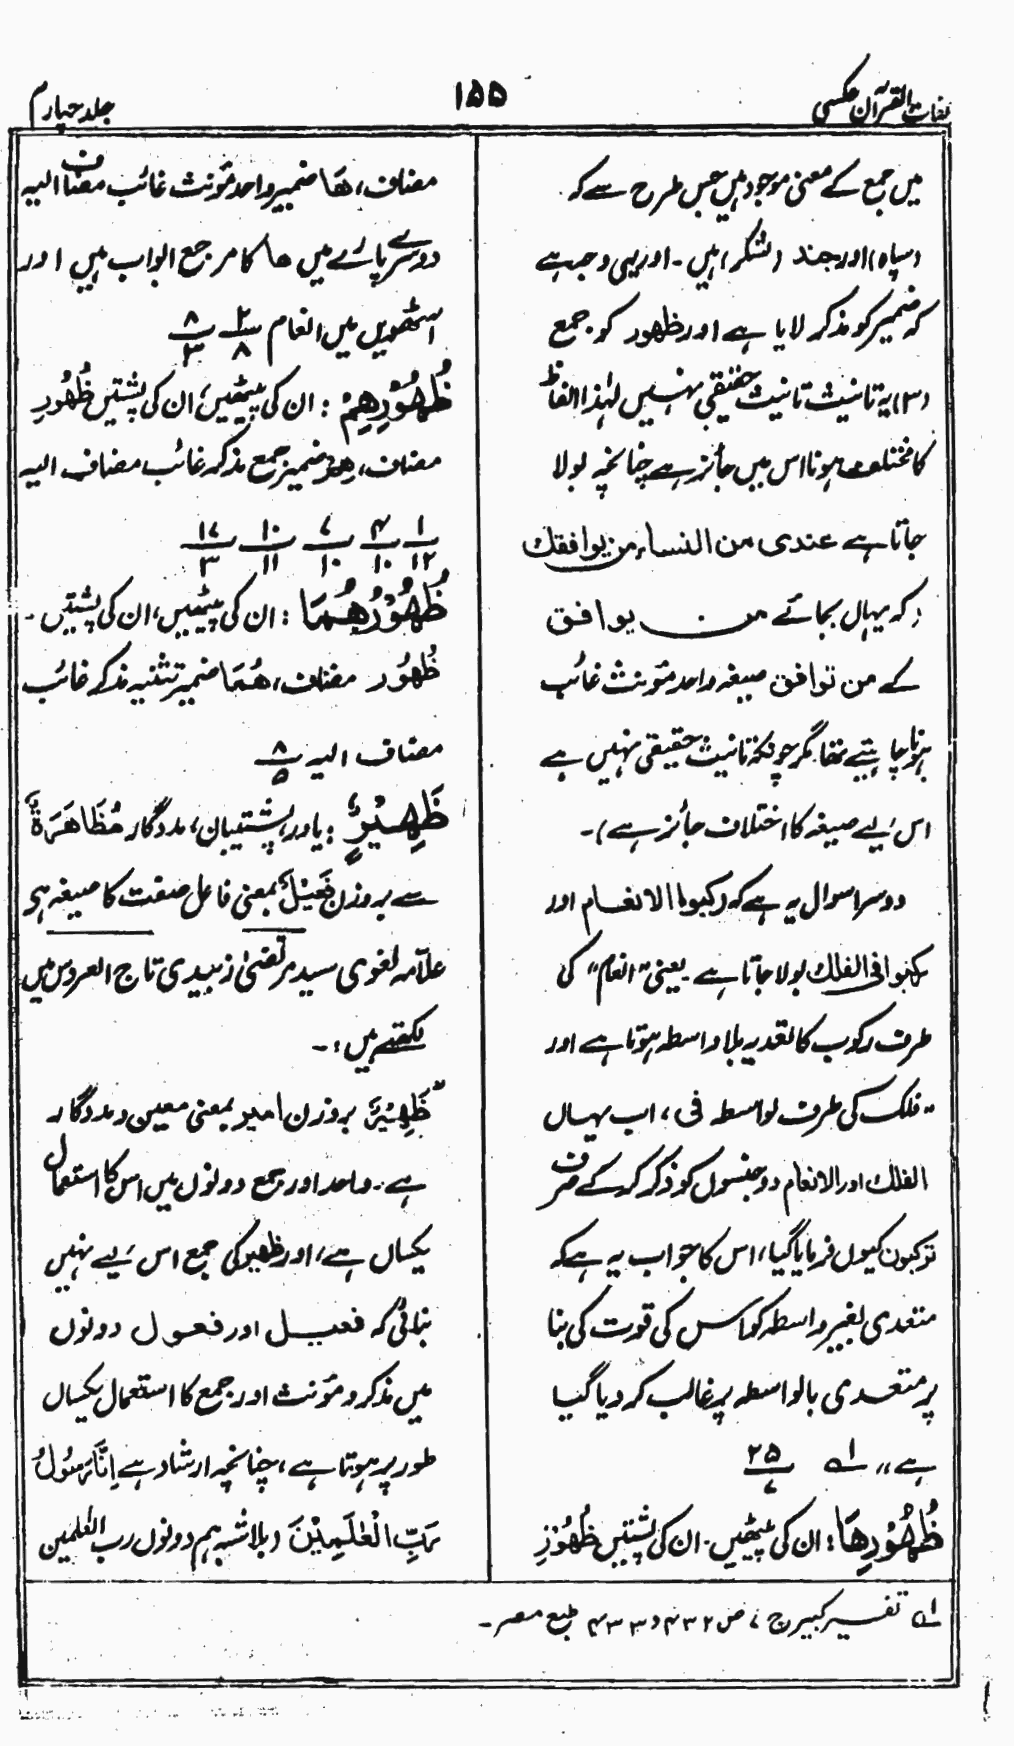 لغات القرآن عکسی
۱۵۵
جلد چہارم
میں جمع کے معنی موجود ہیں جس طرح سے کہ
(سپاہ) اور جند (لشکر) ہیں ۔ اور یہی وجہ ہے
کہ ضمیر کو مذکر لایا ہے اور ظھور کو جمع
(۳) یہ تانیث تانیث حقیقی نہیں لہٰذا الفاظ
کا مختلف ہونا اس میں جائز ہے چنانچہ بولا
جاتا ہے عندی من النساء من یوافقک
(کہ یہاں بجائے من یوافق
کے من توافق صیغہ واحد مؤنث غائب
ہونا چاہیئے تھا. مگر چونکہ تانیث حقیقی نہیں ہے
اس لیے صیغہ کا اختلاف جائز ہے)۔
دوسرا سوال یہ ہے کہ رکبوا الانعام اور
رکبوا فی الفلک بولا جاتا ہے یعنی "انعام" کی
طرف رکوب کا تعدیہ بلا واسطہ ہوتا ہے اور
"فلک کی طرف بواسطہ فی ، اب یہاں
الفلک اور الانعام دو جنسوں کو ذکر کرکے صرف
ترکبون کیوں فرمایا گیا، اس کا جواب یہ ہے کہ
متعدی بغیر واسطہ کو اس کی قوت کی بنا
پر متعدی بالواسطہ پر غالب کر دیا گیا
ہے" لہ ۲۵/۷
ظُهُوْرِهَا: ان کی پیٹھیں. ان کی پشتیں ظُهُوْرِ
مضاف، ھَا ضمیر واحد مؤنث غائب مضاف الیہ
دوسرے پارے میں ھا کا مرجع ابواب ہیں اور
اٹھویں میں انعام ۲/۸ ۸/۳
ظُهُوْرِهِمْ: ان کی پیٹھیں، ان کی پشتیں ظُهُوْرِ
مضاف، ھِمْ ضمیر جمع مذکر غائب مضاف الیہ
۱/۱۲ ۴/۱۰ ۷/۱۰ ۱۰/۱۱ ۱۷/۳
ظُهُوْرُهُمَا: ان کی پیٹھیں، ان کی پشتیں۔
ظُهُور مضاف، هُمَا ضمیر تثنیہ مذکر غائب
مضاف الیہ ۸/۵
ظَهِيْرٌ: یاور، پشتیبان، مددگار مُظَاهَرَةٌ
سے بروزن فَعِيْلٌ بمعنی فاعل صفت کا صیغہ ہے
علّامہ لغوی سید مرتضیٰ زبیدی تاج العروس میں
لکھتے ہیں :۔
"ظَهِيْر بروزن امیر بمعنی معین و مددگار
ہے ۔ واحد اور جمع دونوں میں اس کا استعمال
یکساں ہے، اور ظهیر کی جمع اس لیے نہیں
بنائی کہ فعیل اور فعول دونوں
میں مذکر و مؤنث اور جمع کا استعمال یکساں
طور پر ہوتا ہے، چنانچہ ارشاد ہے اِنَّا رَسُوْلُ
رَبِّ الْعٰلَمِيْنَ (بلاشبہ ہم دونوں رب العٰلمین
لہ تفسیر کبیر ج ۷ ص ۴۳۲ و ۴۳۳ طبع مصر۔